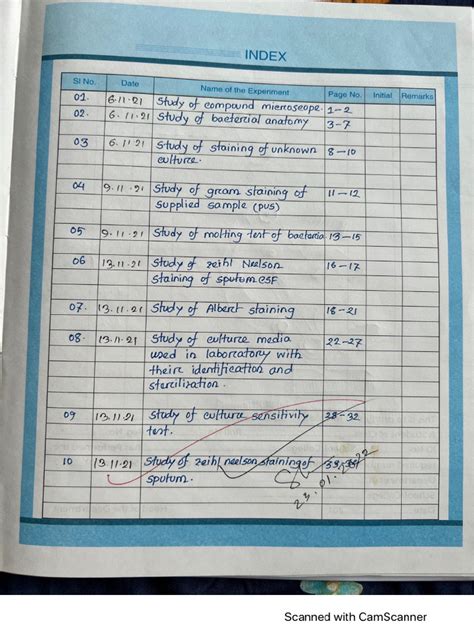 INDEX
Sl No. Date Name of the Experiment Page No. Initial Remarks
01. 6.11.21 Study of compound microscope. 1-2
02. 6.11.21 Study of baeterial anatomy 3-7
03 6.11.21 Study of staining of unknown 8-10
culture.
04 9.11.21 Study of gram staining of 11-12
supplied sample (pus)
05 9.11.21 Study of molting test of bacteria 13-15
06 13.11.21 Study of zeihl Neelson 16-17
Staining of sputum CSF
07. 13.11.21 Study of Albert staining 18-21
08. 13.11.21 Study of culture media 22-27
used in laborcatory with
theire identification and
stercilization.
09 13.11.21 Study of culture sensitivity 28-32
test.
10 13.11.21 Study of zeihl neelson staining of
sputum.
23.01.2022
Scanned with CamScanner